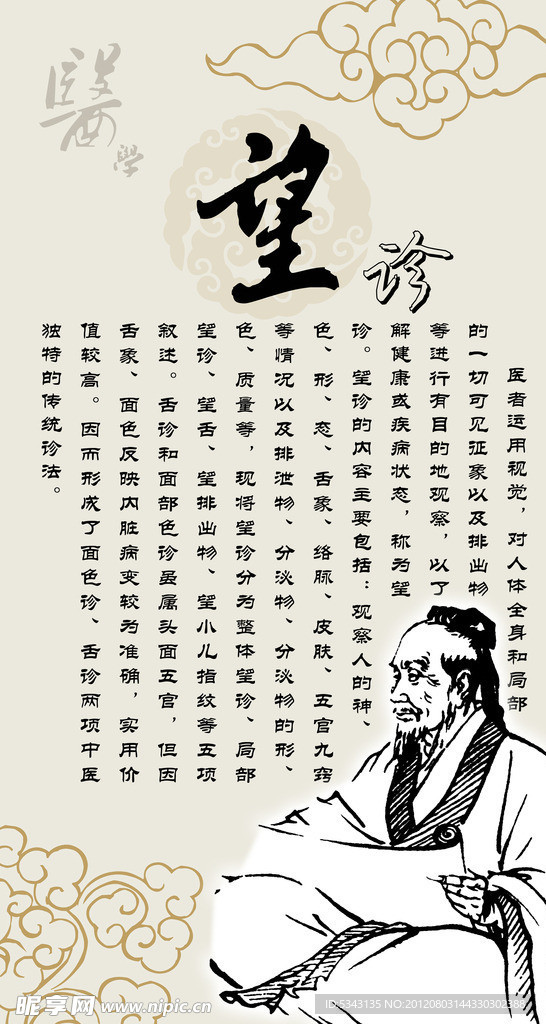 醫
學
望
诊
医者运用视觉，对人体全身和局部
的一切可见征象以及排出物
等进行有目的地观察，以了
解健康或疾病状态，称为望
诊。望诊的内容主要包括：观察人的神、
色、形、态、舌象、络脉、皮肤、五官九窍
等情况以及排泄物、分泌物、分泌物的形、
色、质量等，现将望诊分为整体望诊、局部
望诊、望舌、望排出物、望小儿指纹等五项
叙述。舌诊和面部色诊虽属头面五官，但因
舌象、面色反映内脏病变较为准确，实用价
值较高。因而形成了面色诊、舌诊两项中医
独特的传统诊法。
昵享网 www.nipic.cn
ID:5343135 NO:20120803144330302388